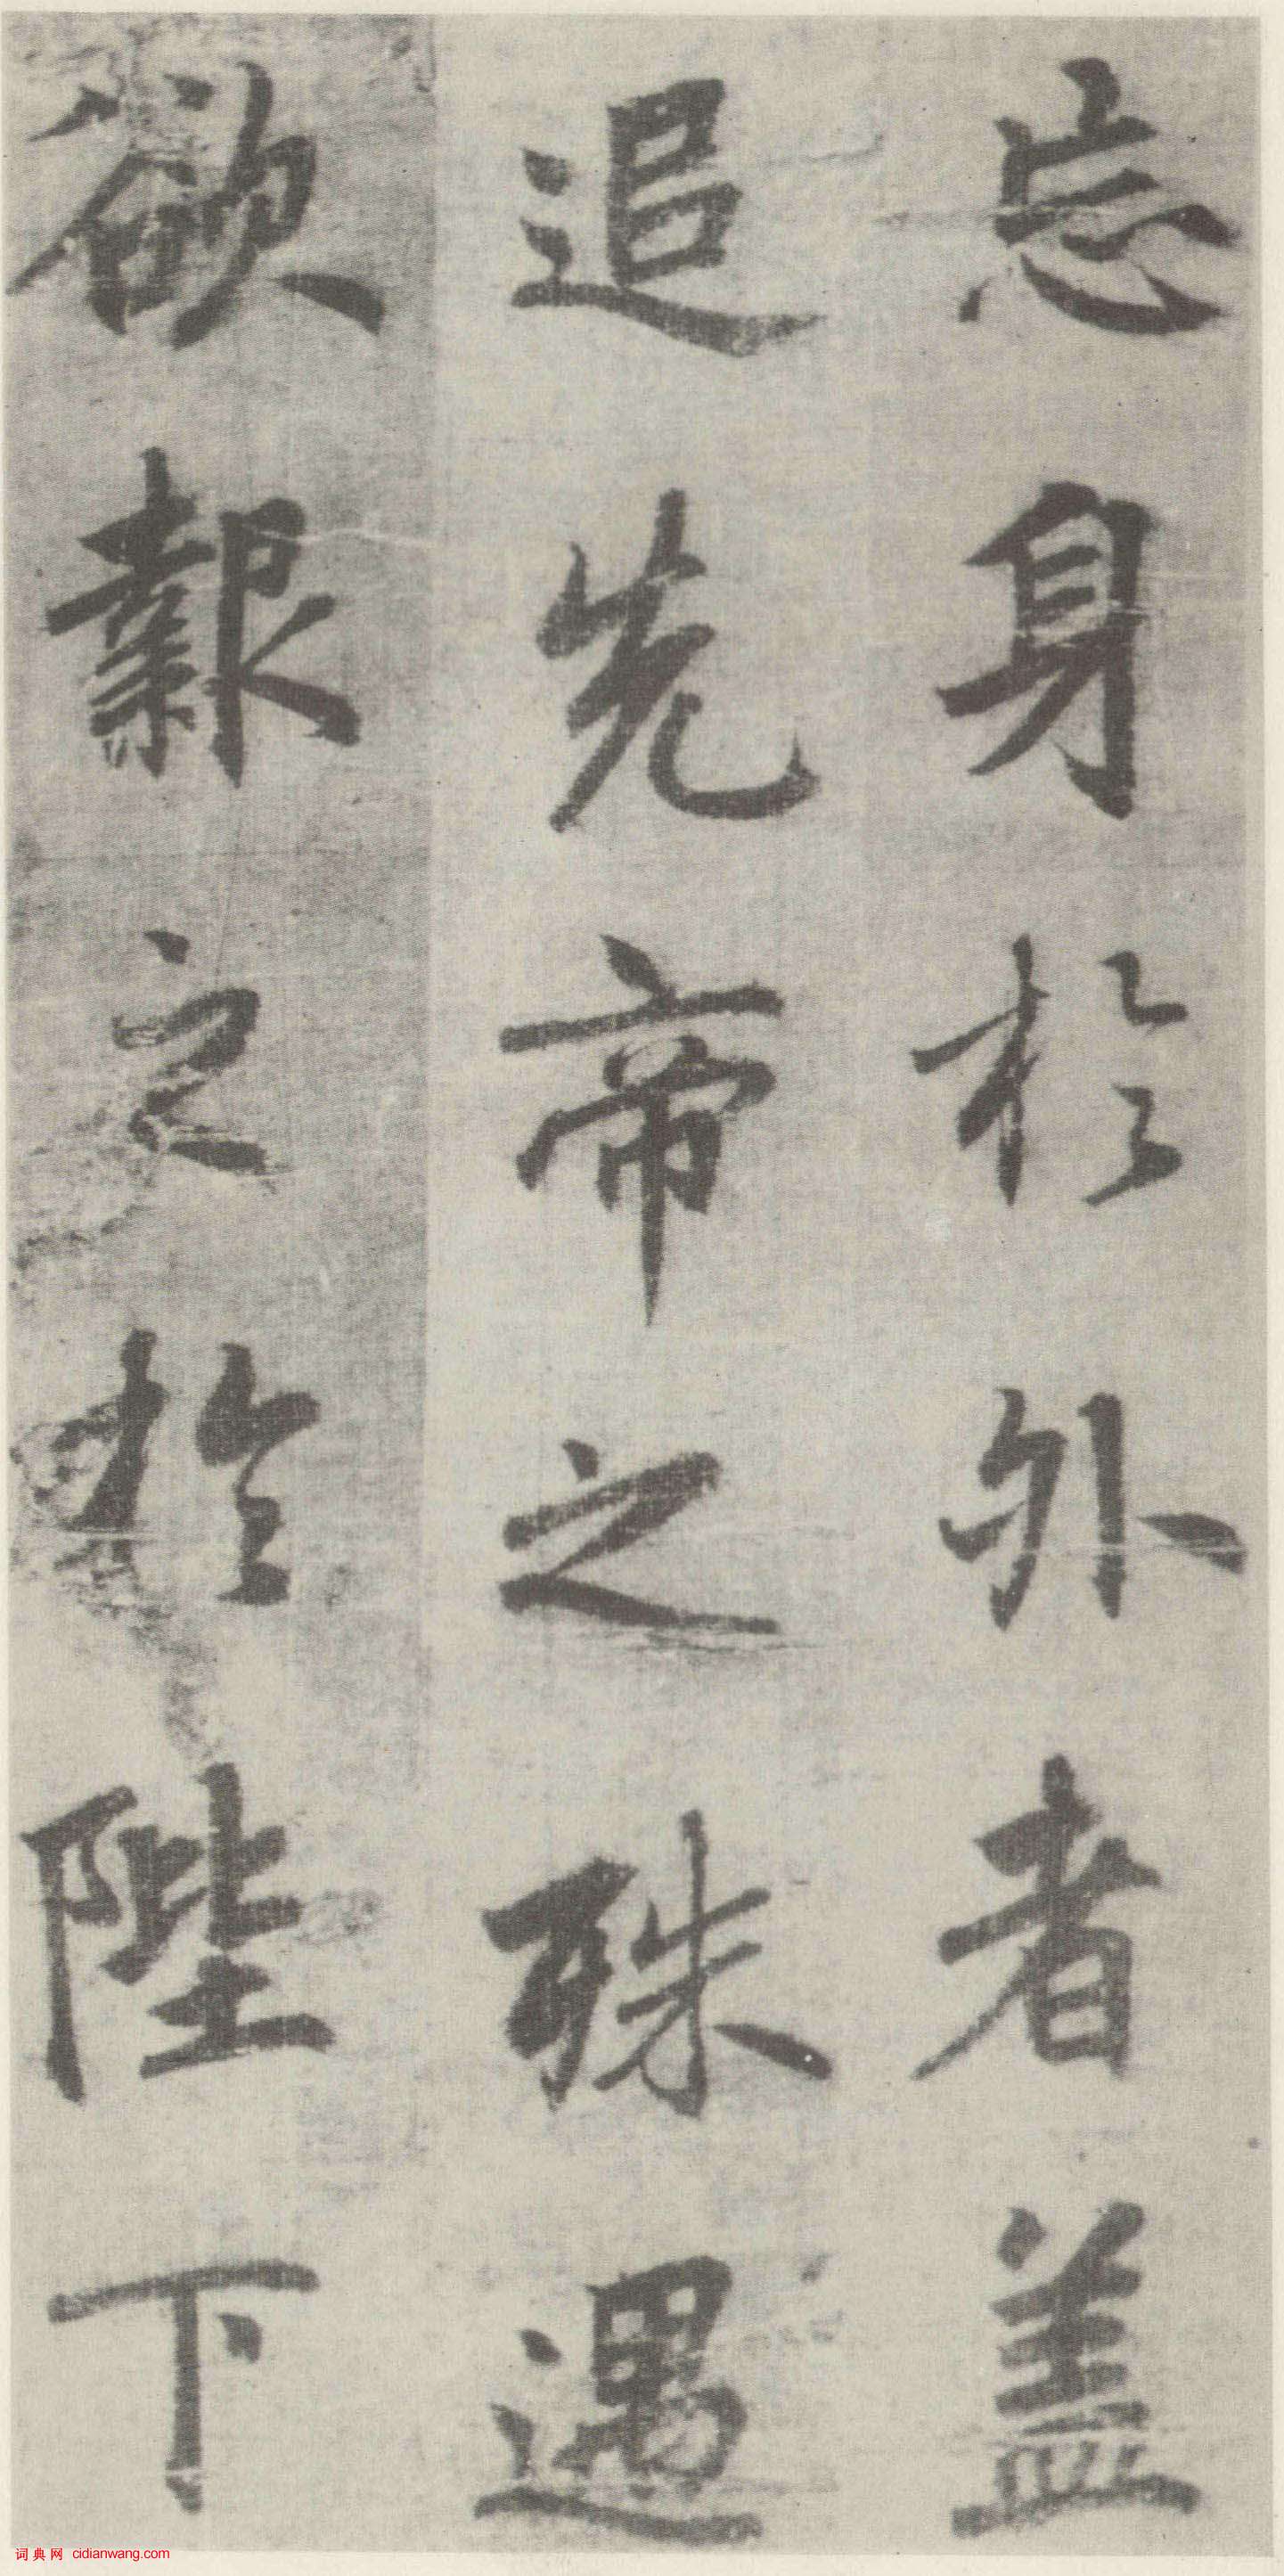 忘身於外者盖
追先帝之殊遇
欲報之於陛下
词典网 cidianwang.com